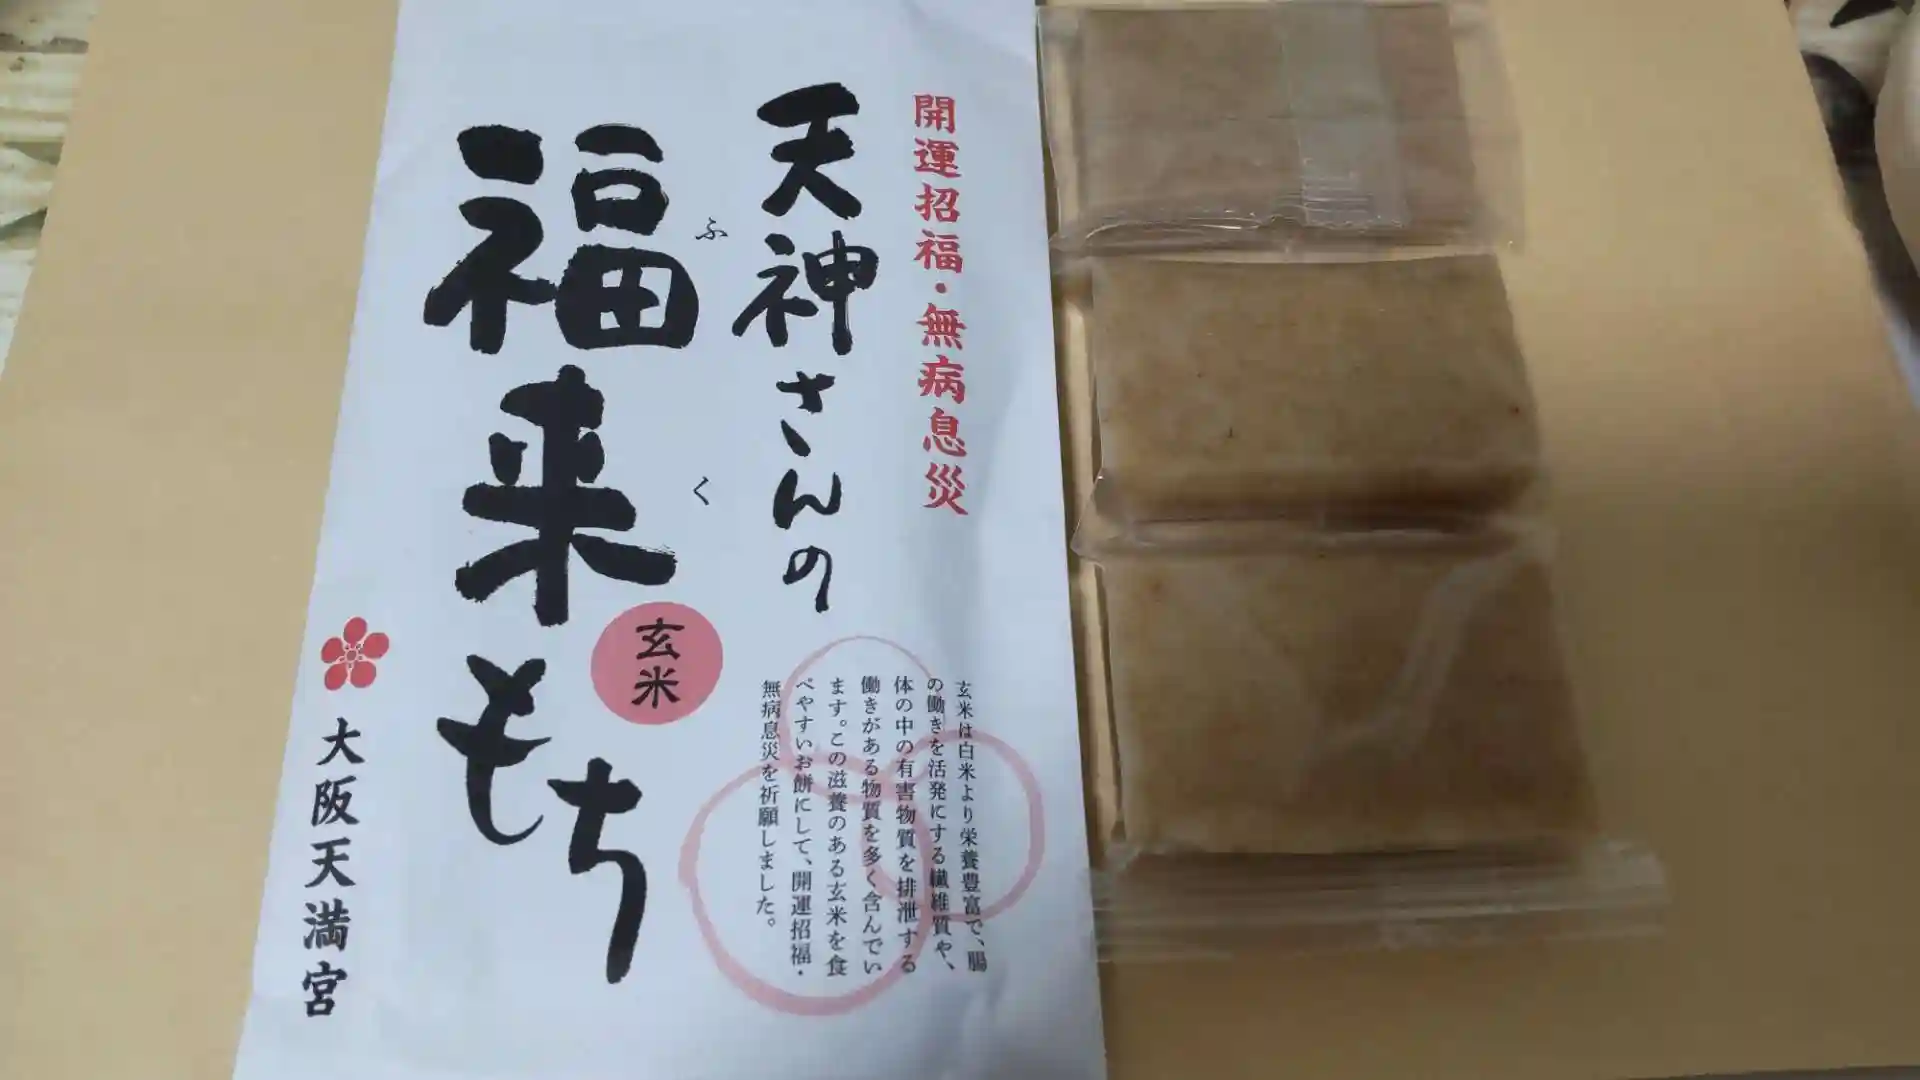 開運招福・無病息災
天神さんの
福来もち
ふく
玄米
玄米は白米より栄養豊富で、腸
の働きを活発にする繊維質や、
体の中の有害物質を排泄する
働きがある物質を多く含んでい
ます。この滋養のある玄米を食
べやすいお餅にして、開運招福・
無病息災を祈願しました。
大阪天満宮